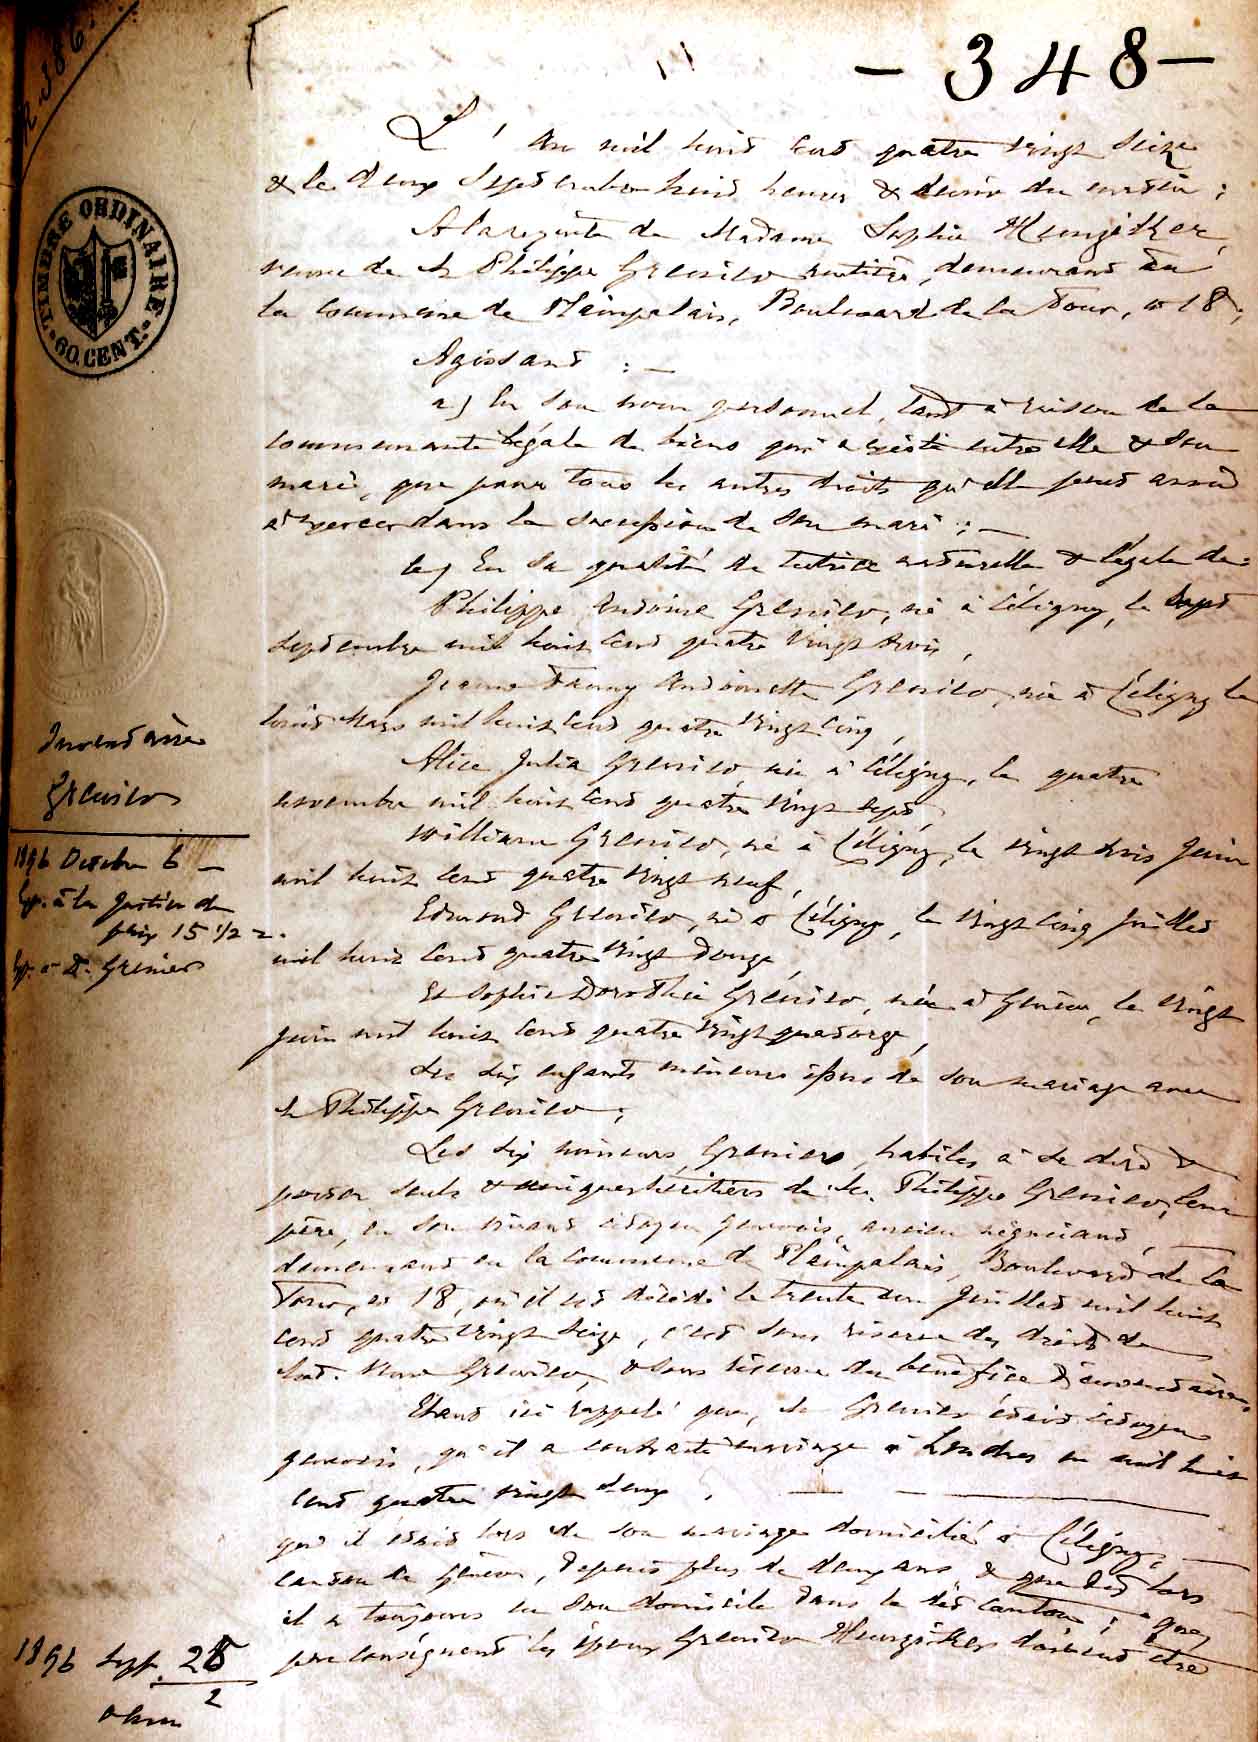 - 348 -
L'an mil huit cent quatre vingt seize
& le deux Septembre huit heures & demie du matin ;
A la requête de Madame Sophie Hunziker,
veuve de Mr Philippe Grenier rentière, demeurant en
la commune de Plainpalais, Boulevard de la Tour, no 18,
Agissant : —
a) En son nom personnel, tant à raison de la
communauté légale de biens qui a existé entre elle & son
mari, que pour tous les autres droits qu'elle peut avoir
à exercer dans la succession de son mari ; —
b) En sa qualité de tutrice naturelle & légale de :
Philippe Antoine Grenier, né à Céligny, le sept
septembre mil huit cent quatre vingt trois,
Jeanne Fanny Antoinette Grenier, née à Céligny le
huit Mars mil huit cent quatre vingt cinq,
Alice Julia Grenier, née à Céligny, le quatre
novembre mil huit cent quatre vingt sept,
William Grenier, né à Céligny, le vingt trois Juin
mil huit cent quatre vingt neuf,
Edmond Grenier, né à Céligny, le vingt cinq Juillet
mil huit cent quatre vingt douze,
Et Sophie Dorothée Grenier, née à Genève, le vingt
Juin mil huit cent quatre vingt quatorze,
Les six enfants mineurs issus de son mariage avec
Mr Philippe Grenier ;
Les six mineurs Grenier, habiles à se dire &
porter seuls & uniques héritiers de Mr Philippe Grenier, leur
père, en son vivant citoyen genevois, ancien négociant,
demeurant en la commune de Plainpalais, Boulevard de la
Tour, no 18, où il est décédé le trente un Juillet mil huit
cent quatre vingt seize, c'est sous réserve des droits de
Mad. veuve Grenier, & sous réserve du bénéfice d'inventaire.
Etant ici rappelé que, Mr Grenier était citoyen
genevois, qu'il a contracté mariage à Londres en mil huit
cent quatre vingt deux,
qu'il était lors de son mariage domicilié à Céligny,
canton de Genève, depuis plus de deux ans, & que dès lors
il a toujours eu son domicile dans le dit canton ; que
par conséquent les époux Grenier Hunziker doivent être
TIMBRE ORDINAIRE
60 CENT.
Inventaire
Grenier
1896 Octobre 6 —
Exp. à la Justice de
paix 15 1/2
Exp. à D. Grenier
1896 Sept. 28
2